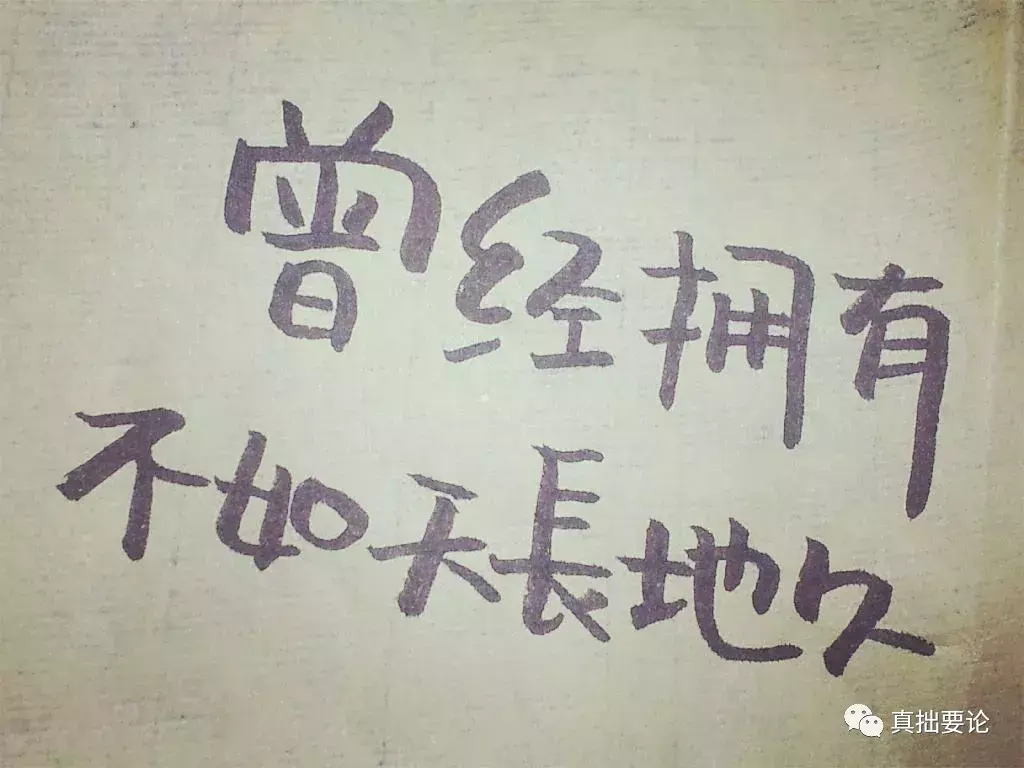 曾经拥有
不如天長地久
真拙要论